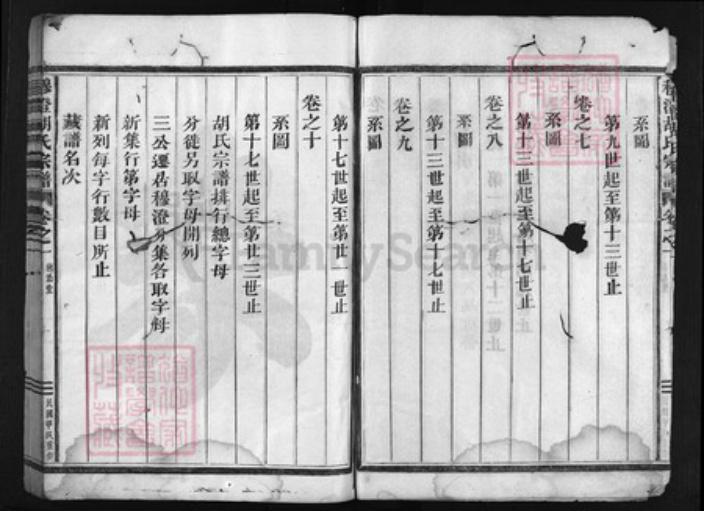 系圖
第九世起至第十三世止
卷之七
系圖
第十三世起至第十七世止
卷之八
系圖
第十三世起至第十七世止
卷之九
系圖
第十七世起至第廿一世止
卷之十
系圖
第十七世起至第廿三世止
胡氏宗譜排行總字母
分徙另取字母開列
三公遷居穆澄分集各取字母
新集行第字母
新列每字行數目所止
藏譜名次
穆澄胡氏宗譜
卷之一
FamilySearch